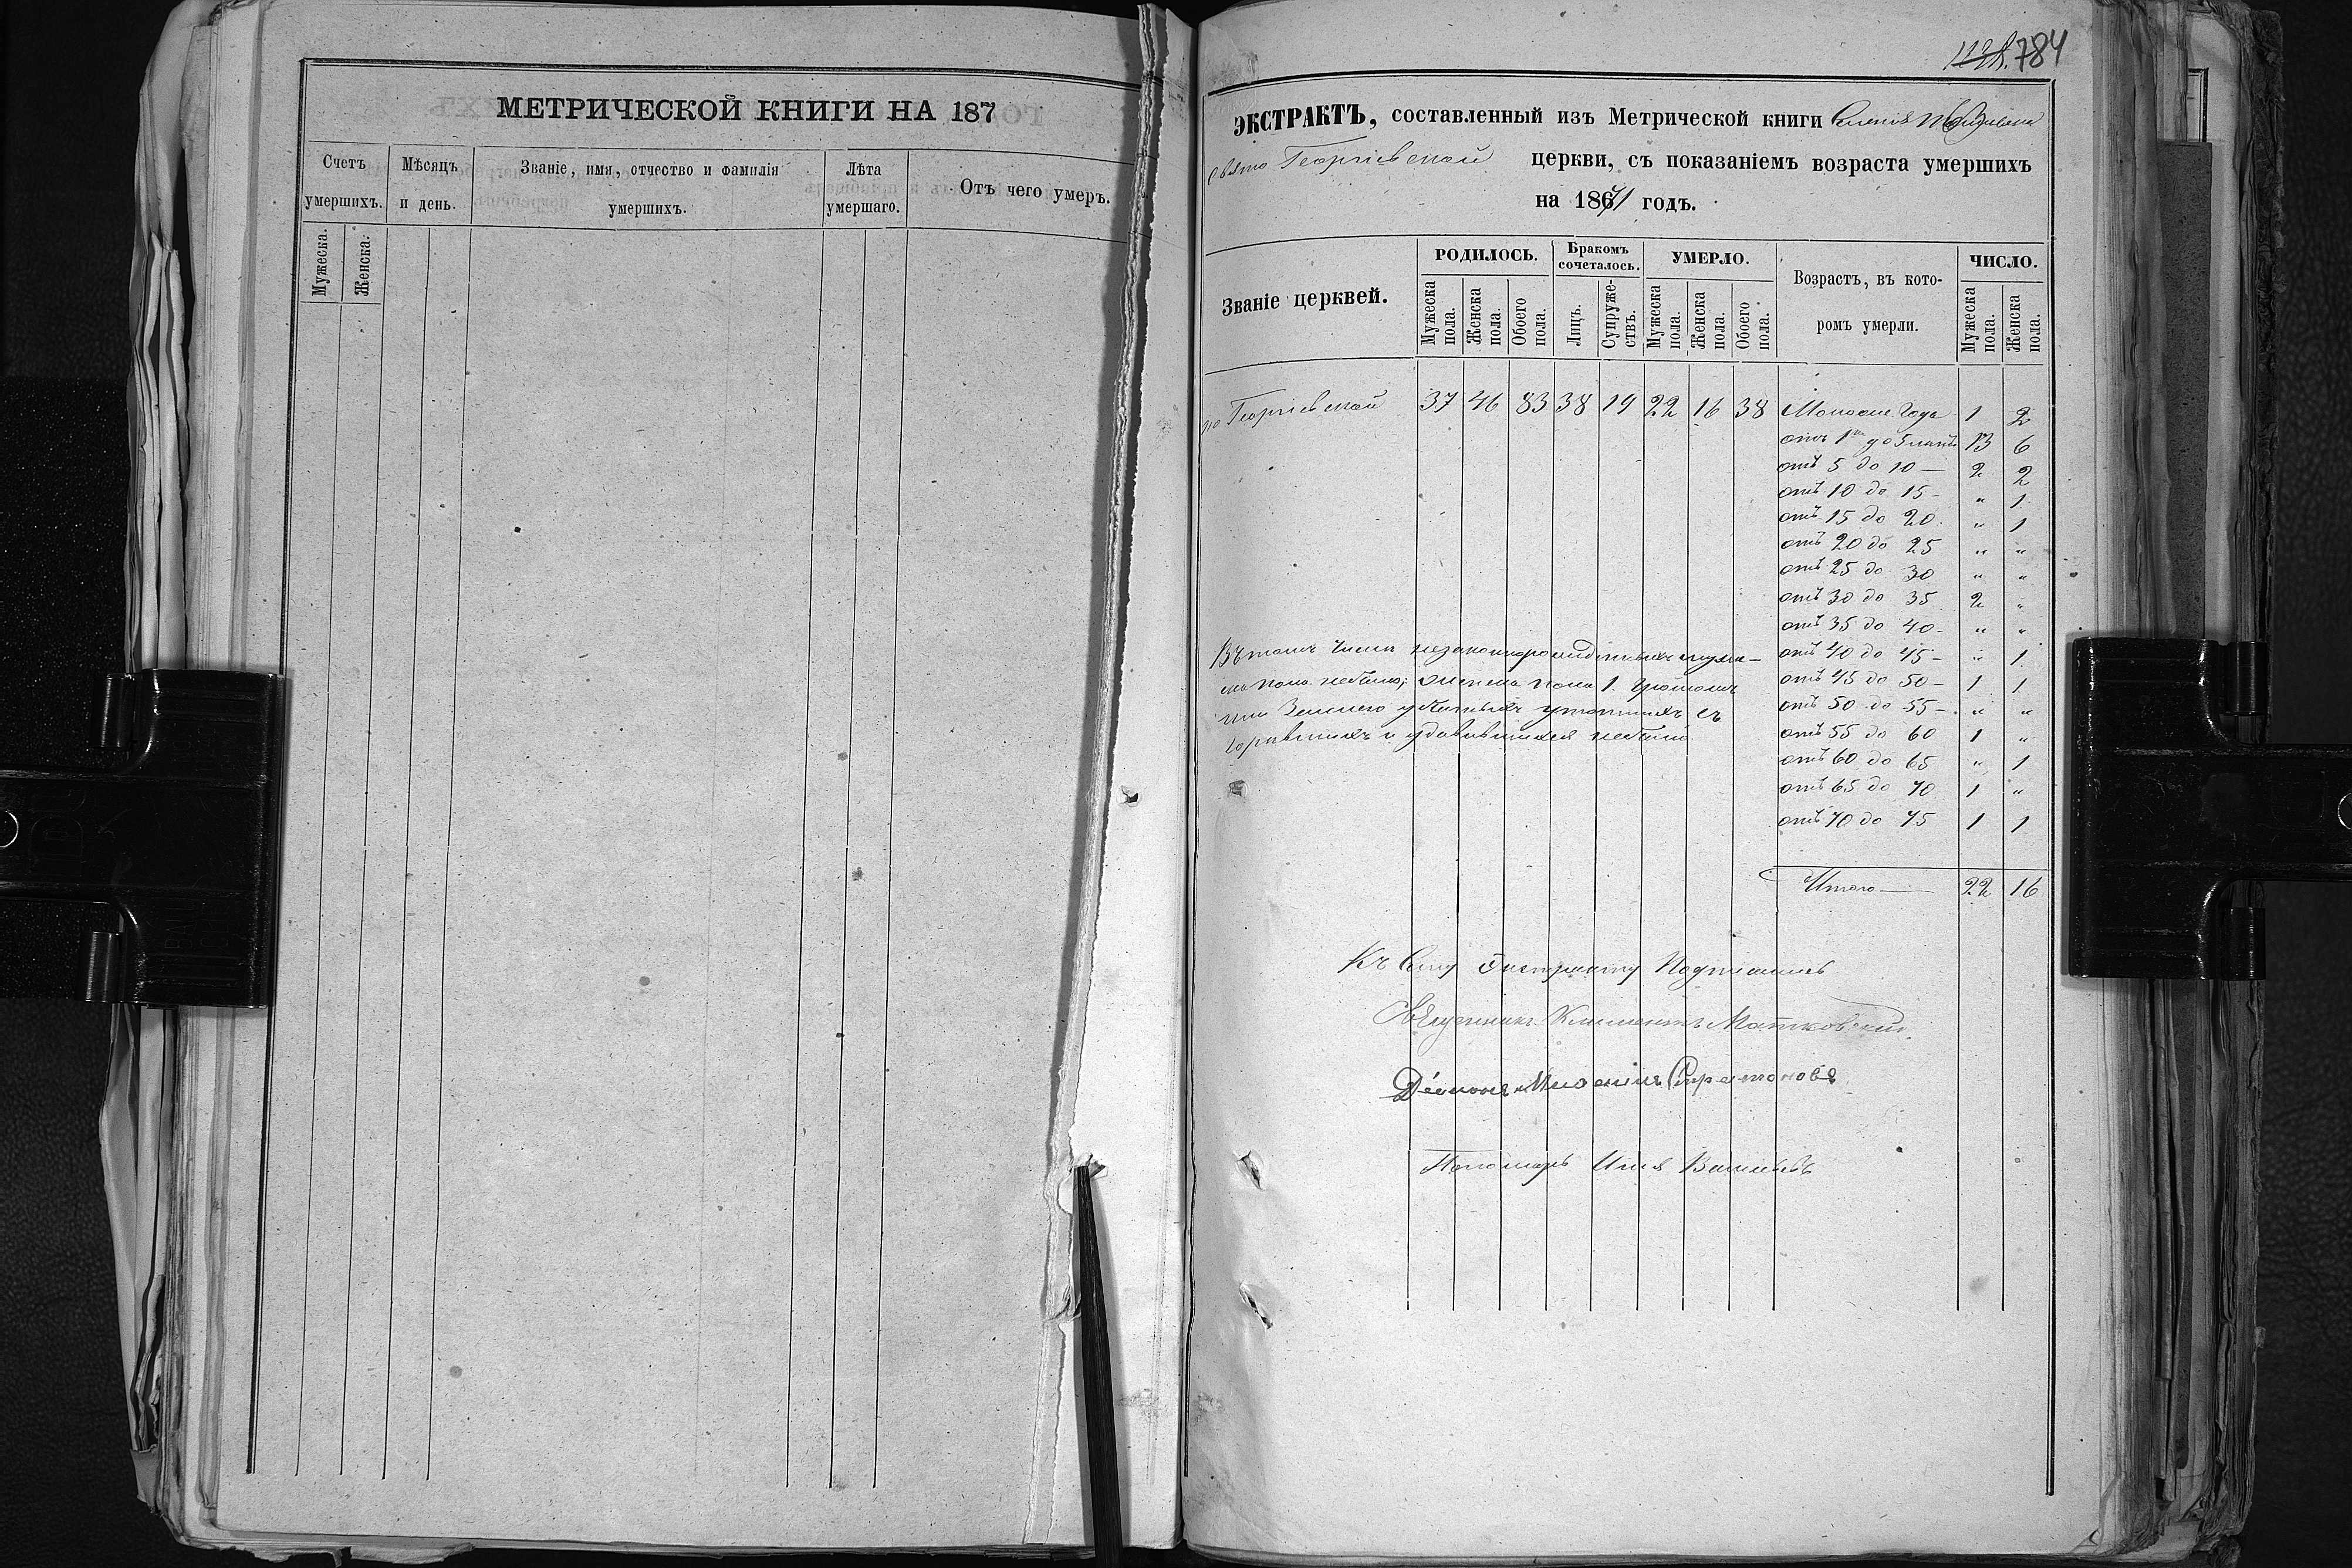 МЕТРИЧЕСКОЙ КНИГИ НА 187
Счетъ умершихъ.
Мѣсяцъ и день.
Званіе, имя, отчество и фамилія умершихъ.
Лѣта умершаго.
Отъ чего умеръ.
Мужеска.
Женска.
1128. 784
ЭКСТРАКТЪ, составленный изъ Метрической книги Селенія
Свято Георгіевской церкви, съ показаніемъ возраста умершихъ
на 1871 годъ.
Званіе церквей.
РОДИЛОСЬ.
Бракомъ сочеталось.
УМЕРЛО.
Возрастъ, въ которомъ умерли.
ЧИСЛО.
Мужеска пола.
Женска пола.
Обоего пола.
Лицъ.
Супружествъ.
Мужеска пола.
Женска пола.
Обоего пола.
Мужеска пола.
Женска пола.
Георгіевской 37 46 83 38 19 22 16 38 Моложе Года 1 2
отъ 1 до 5 лѣтъ 13 6
отъ 5 до 10 — 2 2
отъ 10 до 15 - " 1
отъ 15 до 20 " 1
отъ 20 до 25 " "
отъ 25 до 30 " "
отъ 30 до 35 2 "
отъ 35 до 40 - " "
отъ 40 до 45 - " 1
отъ 45 до 50 - 1 1
отъ 50 до 55 - " "
отъ 55 до 60 1 "
отъ 60 до 65 " 1
отъ 65 до 70 1 "
отъ 70 до 75 1 1
Въ томъ числѣ незаконнорожденныхъ муже-
ска пола небыло; женска пола 1.
убитыхъ утопшихъ с
горѣвшихъ и удавившихся небыло.
Итого — 22 16
Къ сему Экстракту Подписались
Священникъ Климентъ Матковский
Діаконъ
Пономарь Илія Васильевъ